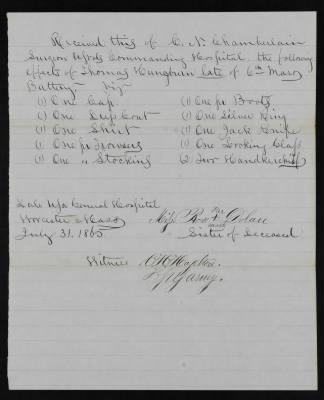 Received this of C. N. Chamberlain
Surgeon Commanding Hospital, the following
effects of Thomas late of 6th Mass
Battery viz
(1) One Cap (1) One pr Boots
(1) One Coat (1) One Silver Ring
(1) One Shirt (1) One Jack Knife
(1) One pr Trowsers (1) One Looking Glass
(1) One " Stocking (2) Two Handkerchief
General Hospital
Worcester Mass
July 31. 1865
Dolan
mark
Sister of Deceased
Witness